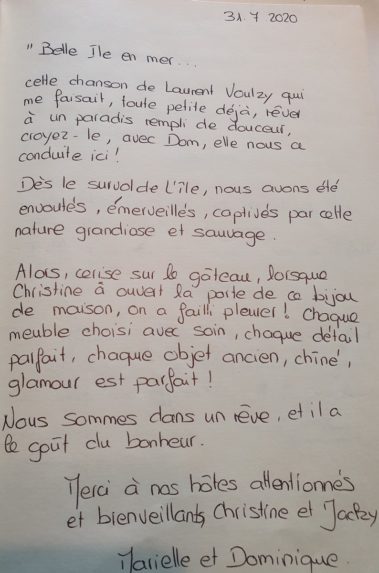 31.7 2020
" Belle Ile en mer...
cette chanson de Laurent Voulzy qui
me faisait, toute petite déjà, rêver
à un paradis rempli de douceur,
croyez-le, avec Dom, elle nous a
conduite ici !
Dès le survol de l'île, nous avons été
envoutés, émerveillés, captivés par cette
nature grandiose et sauvage.
Alors, cerise sur le gâteau, lorsque
Christine à ouvert la porte de ce bijou
de maison, on a failli pleurer ! Chaque
meuble choisi avec soin, chaque détail
parfait, chaque objet ancien, chîné,
glamour est parfait !
Nous sommes dans un rêve, et il a
le goût du bonheur.
Merci à nos hôtes attentionnés
et bienveillants, Christine et Jacky
Marielle et Dominique.